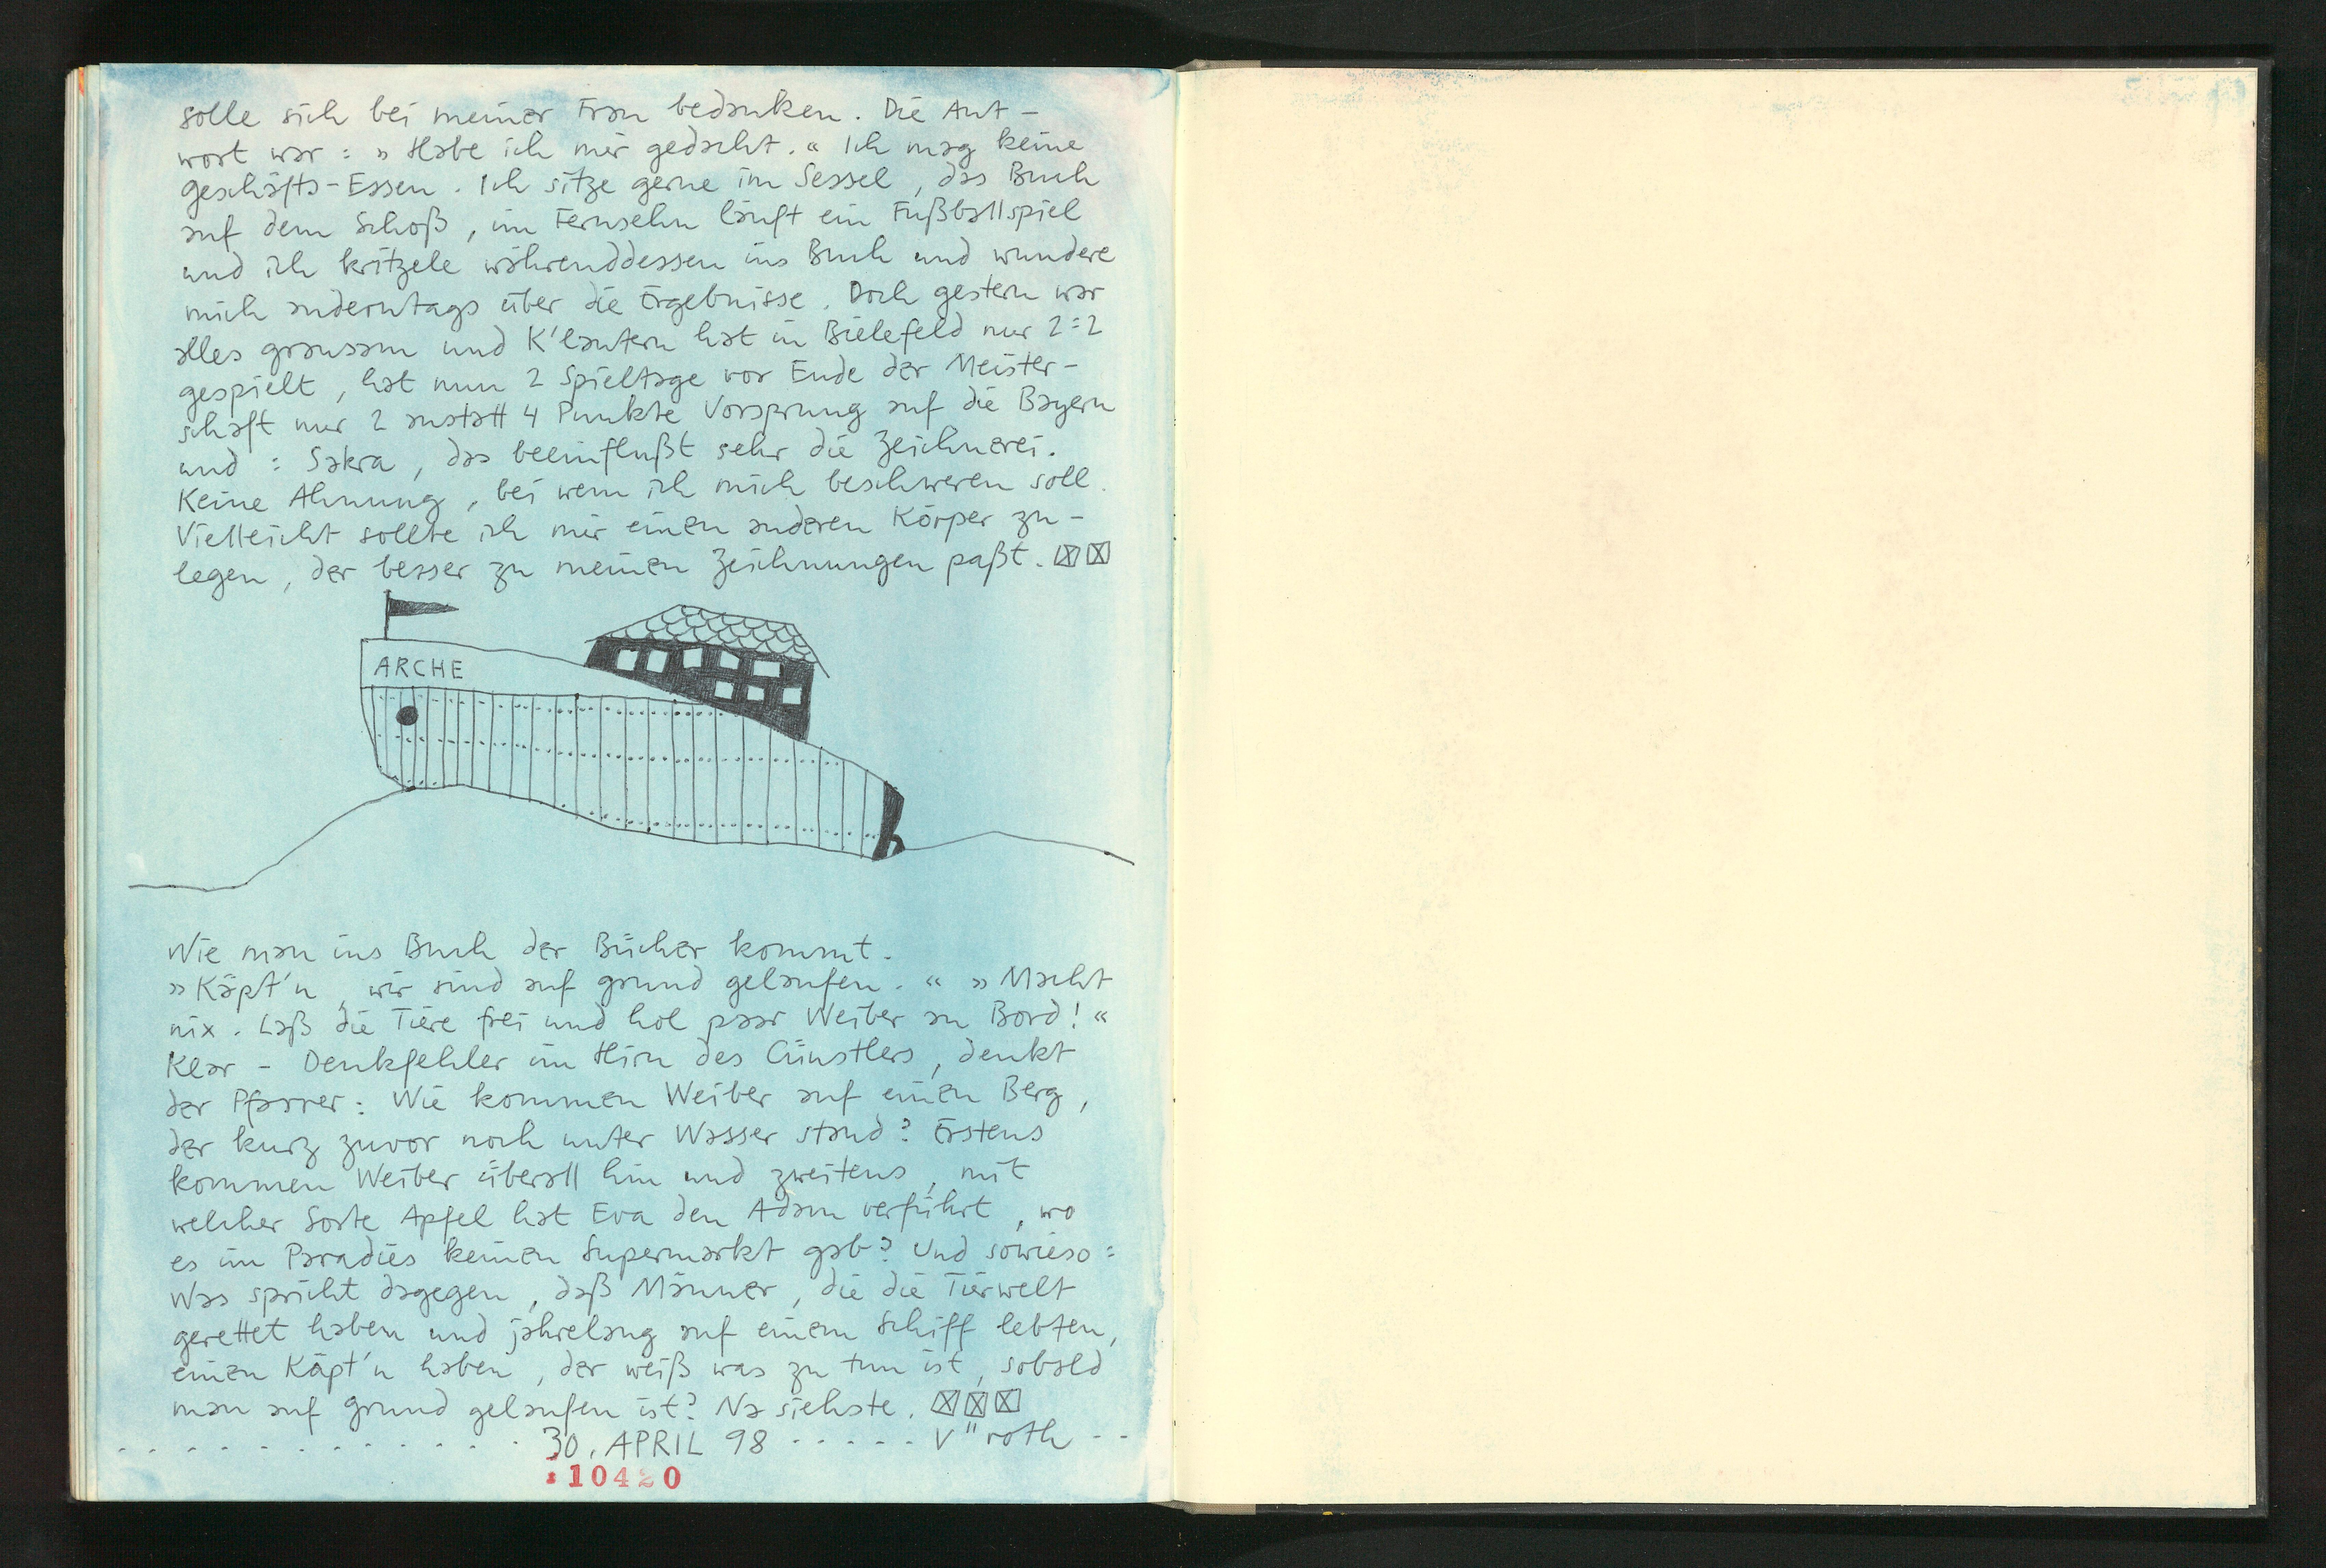 solle sich bei meiner Frau bedanken. Die Ant-
wort war: »Habe ich mir gedacht.« Ich mag keine
Geschäfts-Essen. Ich sitze gerne im Sessel, das Buch
auf dem Schoß, im Fernsehn läuft ein Fußballspiel
und ich kritzele währenddessen ins Buch und wundere
mich anderntags über die Ergebnisse. Doch gestern war
alles grausam und K'lautern hat in Bielefeld nur 2:2
gespielt, hat nun 2 Spieltage vor Ende der Meister-
schaft nur 2 anstatt 4 Punkte Vorsprung auf die Bayern
und: Sakra, das beeinflußt sehr die Zeichnerei.
Keine Ahnung, bei wem ich mich beschweren soll.
Vielleicht sollte ich mir einen anderen Körper zu-
legen, der besser zu meinen Zeichnungen paßt.
ARCHE
Wie man ins Buch der Bücher kommt.
»Käpt'n, wir sind auf Grund gelaufen.« »Macht
nix. Laß die Tiere frei und hol paar Weiber an Bord!«
Klar - Denkfehler im Hirn des Cünstlers, denkt
der Pfarrer: Wie kommen Weiber auf einen Berg,
der kurz zuvor noch unter Wasser stand? Erstens
kommen Weiber überall hin und zweitens, mit
welcher Sorte Apfel hat Eva den Adam verführt, wo
es im Paradies keinen Supermarkt gab? Und sowieso:
Was spricht dagegen, daß Männer, die die Tierwelt
gerettet haben und jahrelang auf einem Schiff lebten,
einen Käpt'n haben, der weiß was zu tun ist, sobald
man auf Grund gelaufen ist? Na siehste.
30. APRIL 98 ..... v"roth
10420